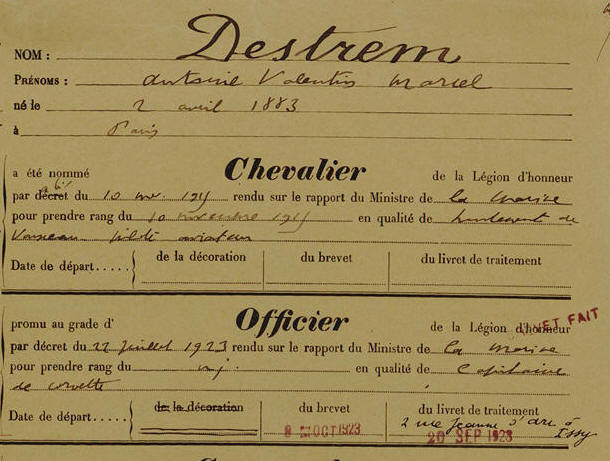 NOM : Destrem
PRÉNOMS : Antoine Valentin Marcel
né le 2 avril 1883
à Paris
a été nommé Chevalier de la Légion d'honneur
par décret du 10 nov. 1915 rendu sur le rapport du Ministre de la Marine
pour prendre rang du 10 novembre 1915 en qualité de Lieutenant de
Vaisseau pilote aviateur
Date de départ..... { de la décoration du brevet du livret de traitement
promu au grade d' Officier de la Légion d'honneur
LIVRET FAIT
par décret du 22 juillet 1923 rendu sur le rapport du Ministre de la Marine
pour prendre rang du en qualité de Capitaine
de corvette
Date de départ..... { de la décoration du brevet du livret de traitement
8 OCT 1923 2 rue Jeanne d'arc à
20 SEP 1923 Issy